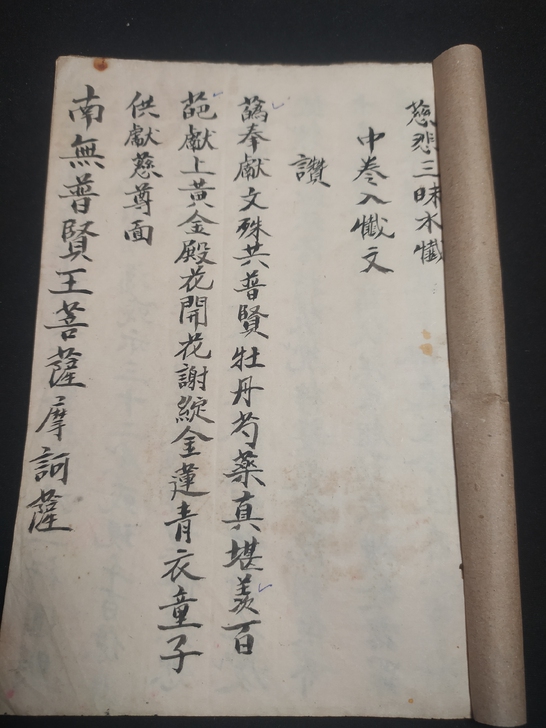 慈悲三昧水懺
中卷入懺文
讚
蘤奉獻文殊共普賢牡丹芍藥真堪羨百
葩獻上黃金殿花開花謝綻金蓮青衣童子
供獻慈尊面
南無普賢王菩薩摩訶薩